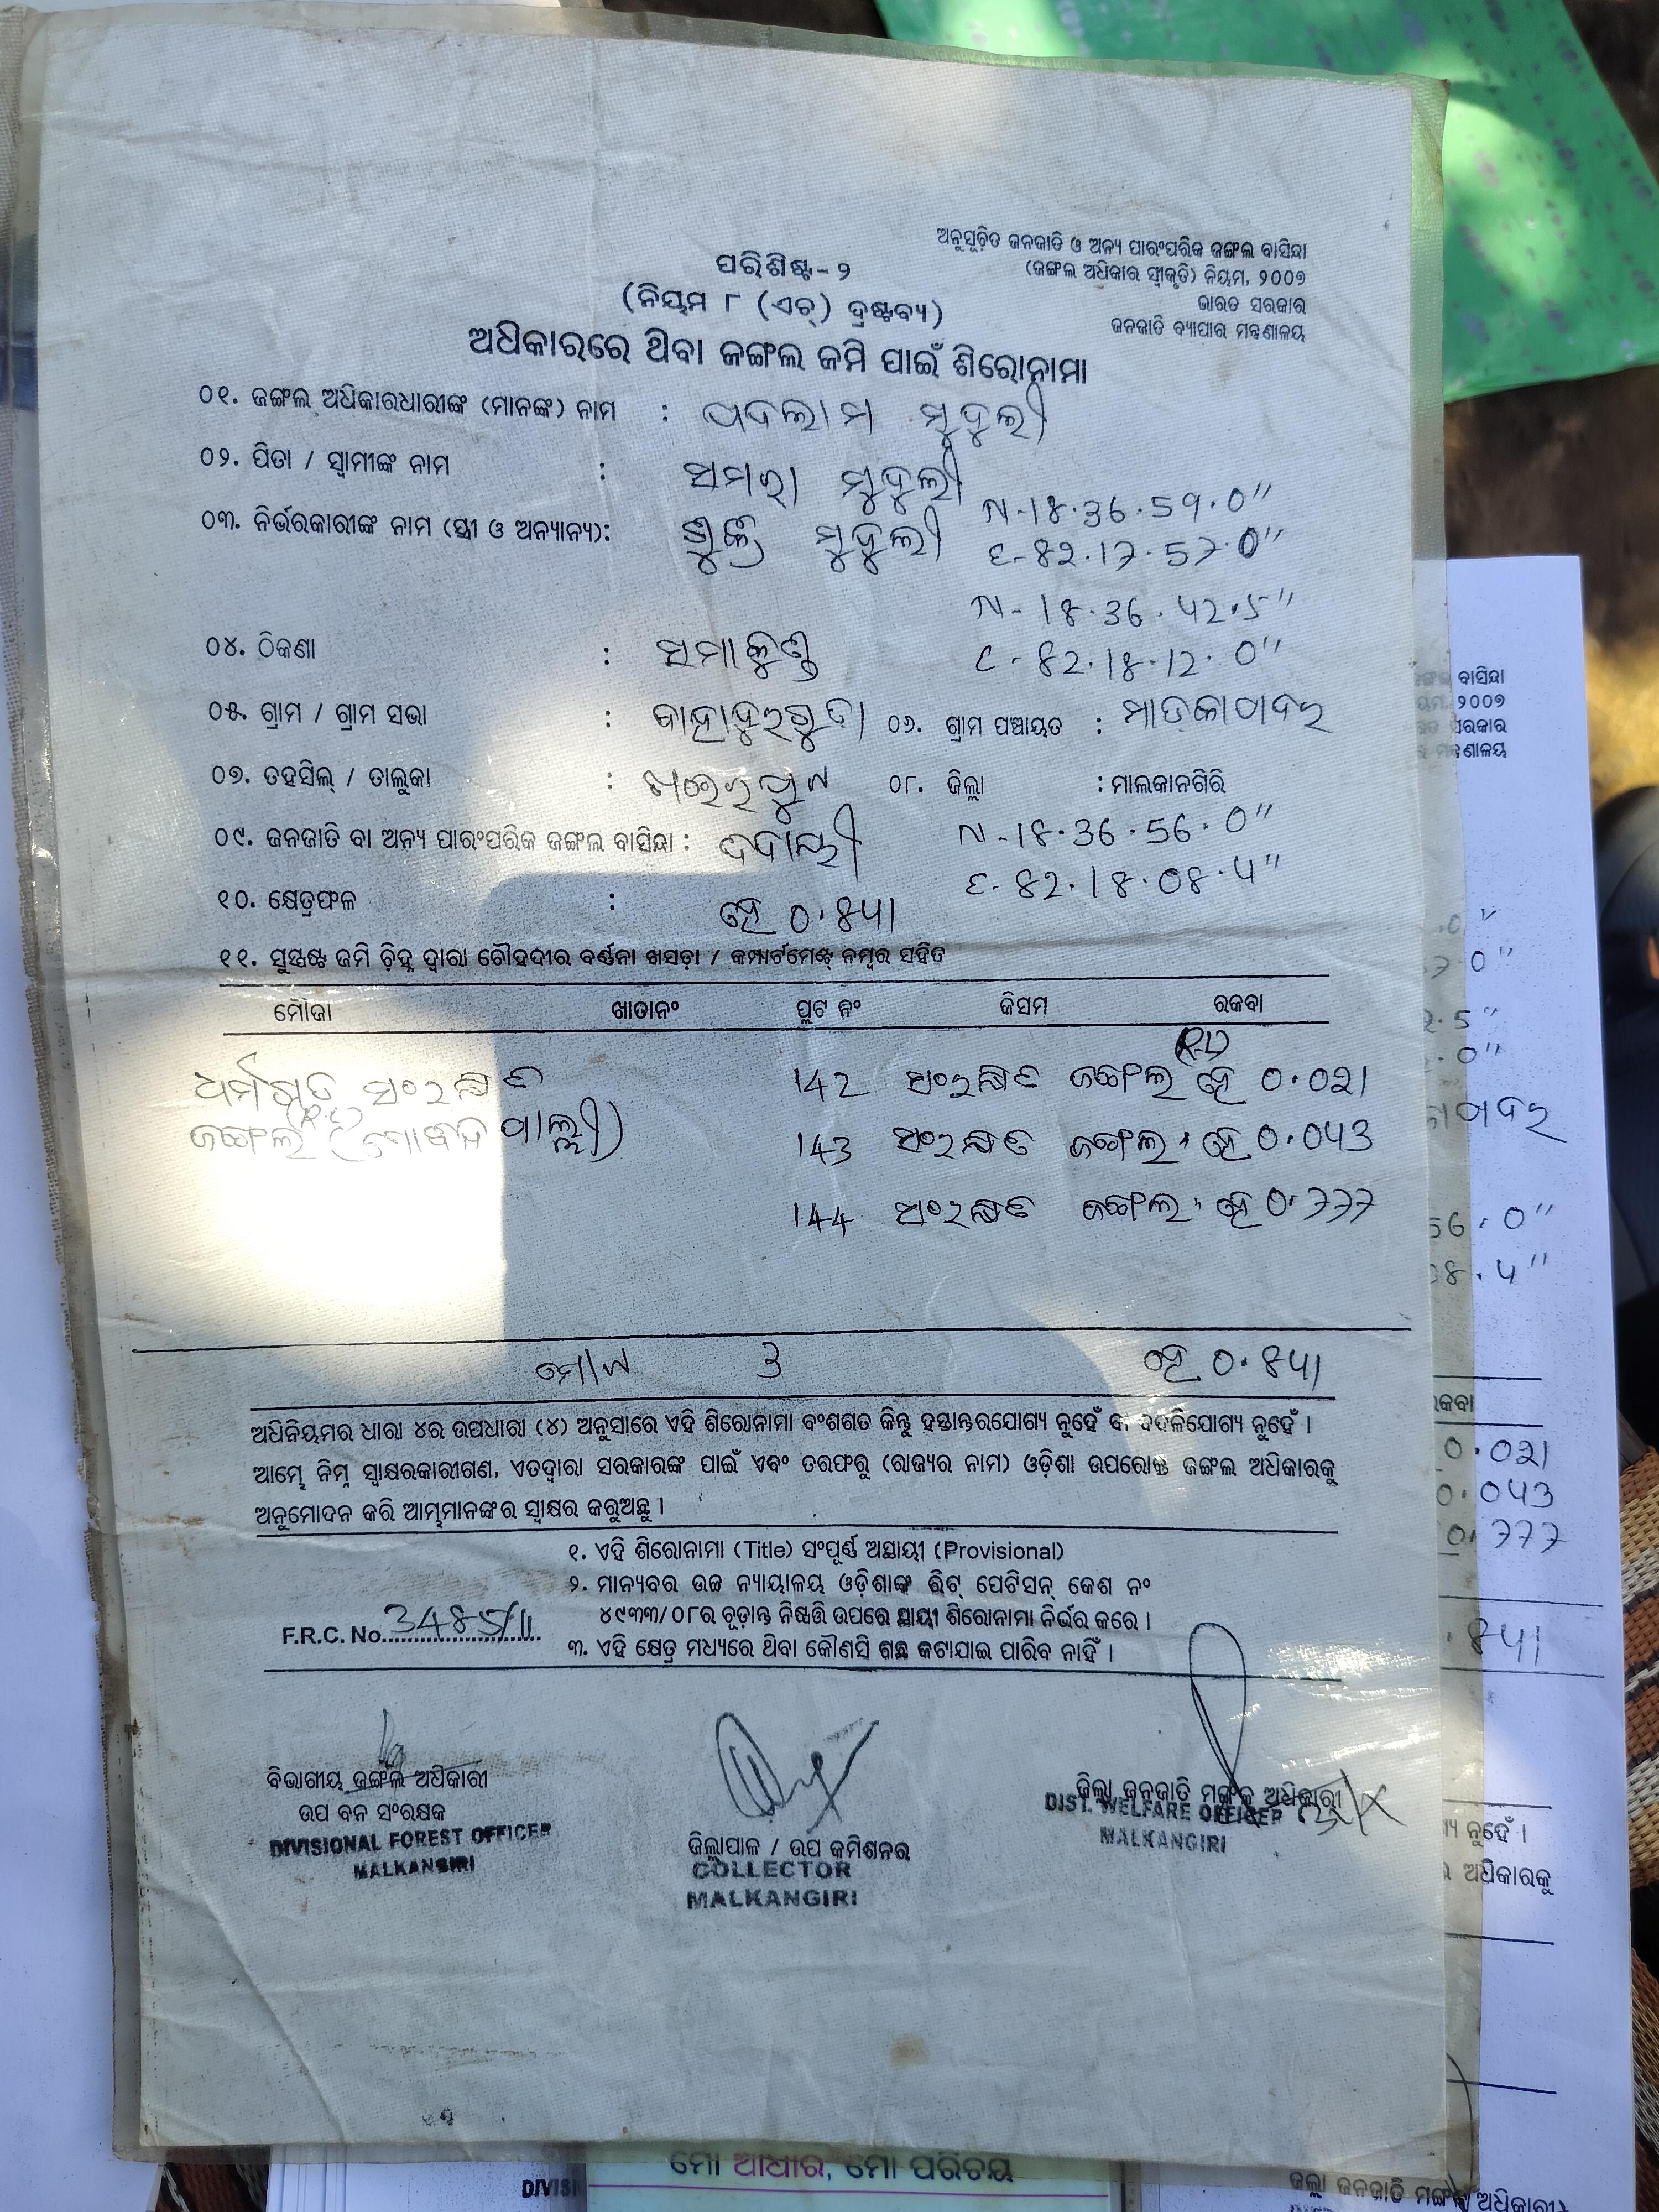 ଅନୁସୂଚିତ ଜନଜାତି ଓ ଅନ୍ୟ ପାରଂପରିକ ଜଙ୍ଗଲ ବାସିନ୍ଦା
(ଜଙ୍ଗଲ ଅଧିକାର ସ୍ୱୀକୃତି) ନିୟମ, ୨୦୦୭
ଭାରତ ସରକାର
ଜନଜାତି ବ୍ୟାପାର ମନ୍ତ୍ରଣାଳୟ
ପରିଶିଷ୍ଟ-୨
(ନିୟମ ୮ (ଏଚ୍) ଦ୍ରଷ୍ଟବ୍ୟ)
ଅଧିକାରରେ ଥିବା ଜଙ୍ଗଲ ଜମି ପାଇଁ ଶିରୋନାମା
୦୧. ଜଙ୍ଗଲ ଅଧିକାରଧାରୀଙ୍କ (ମାନଙ୍କ) ନାମ : ପଦଲାମ ମୁଦୁଲୀ
୦୨. ପିତା / ସ୍ୱାମୀଙ୍କ ନାମ : ସମରା ମୁଦୁଲୀ
N-18.36.59.0"
୦୩. ନିର୍ଭରକାରୀଙ୍କ ନାମ (ସ୍ତ୍ରୀ ଓ ଅନ୍ୟାନ୍ୟ): ମୁଦୁଲୀ
E-82.17.57.0"
N-18.36.42.5"
୦୪. ଠିକଣା : ସମାକୁଣ୍ଡ
E-82.18.12.0"
୦୫. ଗ୍ରାମ / ଗ୍ରାମ ସଭା : ବାହାଦୁରଗୁଡା ୦୬. ଗ୍ରାମ ପଞ୍ଚାୟତ : ମାଡକାପାଦର
୦୭. ତହସିଲ୍ / ତାଲୁକା : ଖଇରପୁଟ ୦୮. ଜିଲ୍ଲା : ମାଲକାନଗିରି
୦୯. ଜନଜାତି ବା ଅନ୍ୟ ପାରଂପରିକ ଜଙ୍ଗଲ ବାସିନ୍ଦା : ଦିଦାୟୀ
N-18.36.56.0"
E-82.18.08.4"
୧୦. କ୍ଷେତ୍ରଫଳ : ହେ 0.841
୧୧. ସୁସ୍ପଷ୍ଟ ଜମି ଚିହ୍ନ ଦ୍ୱାରା ଚୌହଦୀର ବର୍ଣ୍ଣନା ଖସଡ଼ା / କମ୍ପାର୍ଟମେଣ୍ଟ୍ ନମ୍ବର ସହିତ
ମୌଜା ଖାତାନଂ ପ୍ଲଟ ନଂ କିସମ ରକବା
ସଂରକ୍ଷିତ 142 ସଂରକ୍ଷିତ ଜଙ୍ଗଲ ହେ 0.021
ଜଙ୍ଗଲ 143 ସଂରକ୍ଷିତ ଜଙ୍ଗଲ ହେ 0.043
144 ସଂରକ୍ଷିତ ଜଙ୍ଗଲ ହେ 0.777
ମୋଟ 3 ହେ 0.841
ଅଧିନିୟମର ଧାରା ୪ର ଉପଧାରା (୪) ଅନୁସାରେ ଏହି ଶିରୋନାମା ବଂଶଗତ କିନ୍ତୁ ହସ୍ତାନ୍ତରଯୋଗ୍ୟ ନୁହେଁ ବା ବଦଳିଯୋଗ୍ୟ ନୁହେଁ ।
ଆମ୍ଭେ ନିମ୍ନ ସ୍ୱାକ୍ଷରକାରୀଗଣ, ଏତଦ୍ୱାରା ସରକାରଙ୍କ ପାଇଁ ଏବଂ ତରଫରୁ (ରାଜ୍ୟର ନାମ) ଓଡ଼ିଶା ଉପରୋକ୍ତ ଜଙ୍ଗଲ ଅଧିକାରକୁ
ଅନୁମୋଦନ କରି ଆମ୍ଭମାନଙ୍କର ସ୍ୱାକ୍ଷର କରୁଅଛୁ ।
୧. ଏହି ଶିରୋନାମା (Title) ସଂପୂର୍ଣ୍ଣ ଅସ୍ଥାୟୀ (Provisional)
୨. ମାନ୍ୟବର ଉଚ୍ଚ ନ୍ୟାୟାଳୟ ଓଡ଼ିଶାଙ୍କ ରିଟ୍ ପେଟିସନ୍ କେଶ ନଂ
୪୯୩୩/୦୮ର ଚୂଡ଼ାନ୍ତ ନିଷ୍ପତ୍ତି ଉପରେ ସ୍ଥାୟୀ ଶିରୋନାମା ନିର୍ଭର କରେ ।
F.R.C. No. 3485/11
୩. ଏହି କ୍ଷେତ୍ର ମଧ୍ୟରେ ଥିବା କୌଣସି ଗଛ କଟାଯାଇ ପାରିବ ନାହିଁ ।
ବିଭାଗୀୟ ଜଙ୍ଗଲ ଅଧିକାରୀ
ଉପ ବନ ସଂରକ୍ଷକ
DIVISIONAL FOREST OFFICER
MALKANGIRI
ଜିଲ୍ଲାପାଳ / ଉପ କମିଶନର
COLLECTOR
MALKANGIRI
ଜିଲ୍ଲା ଜନଜାତି ମଙ୍ଗଳ ଅଧିକାରୀ
DIST. WELFARE OFFICER
MALKANGIRI
ବାସିନ୍ଦା
୨୦୦୭
ସରକାର
0.021
0.043
0.777
ନୁହେଁ ।
ଅଧିକାରକୁ
ମୋ ଆଧାର, ମୋ ପରିଚୟ
ଜିଲ୍ଲା ଜନଜାତି ମଙ୍ଗଳ ଅଧିକାରୀ